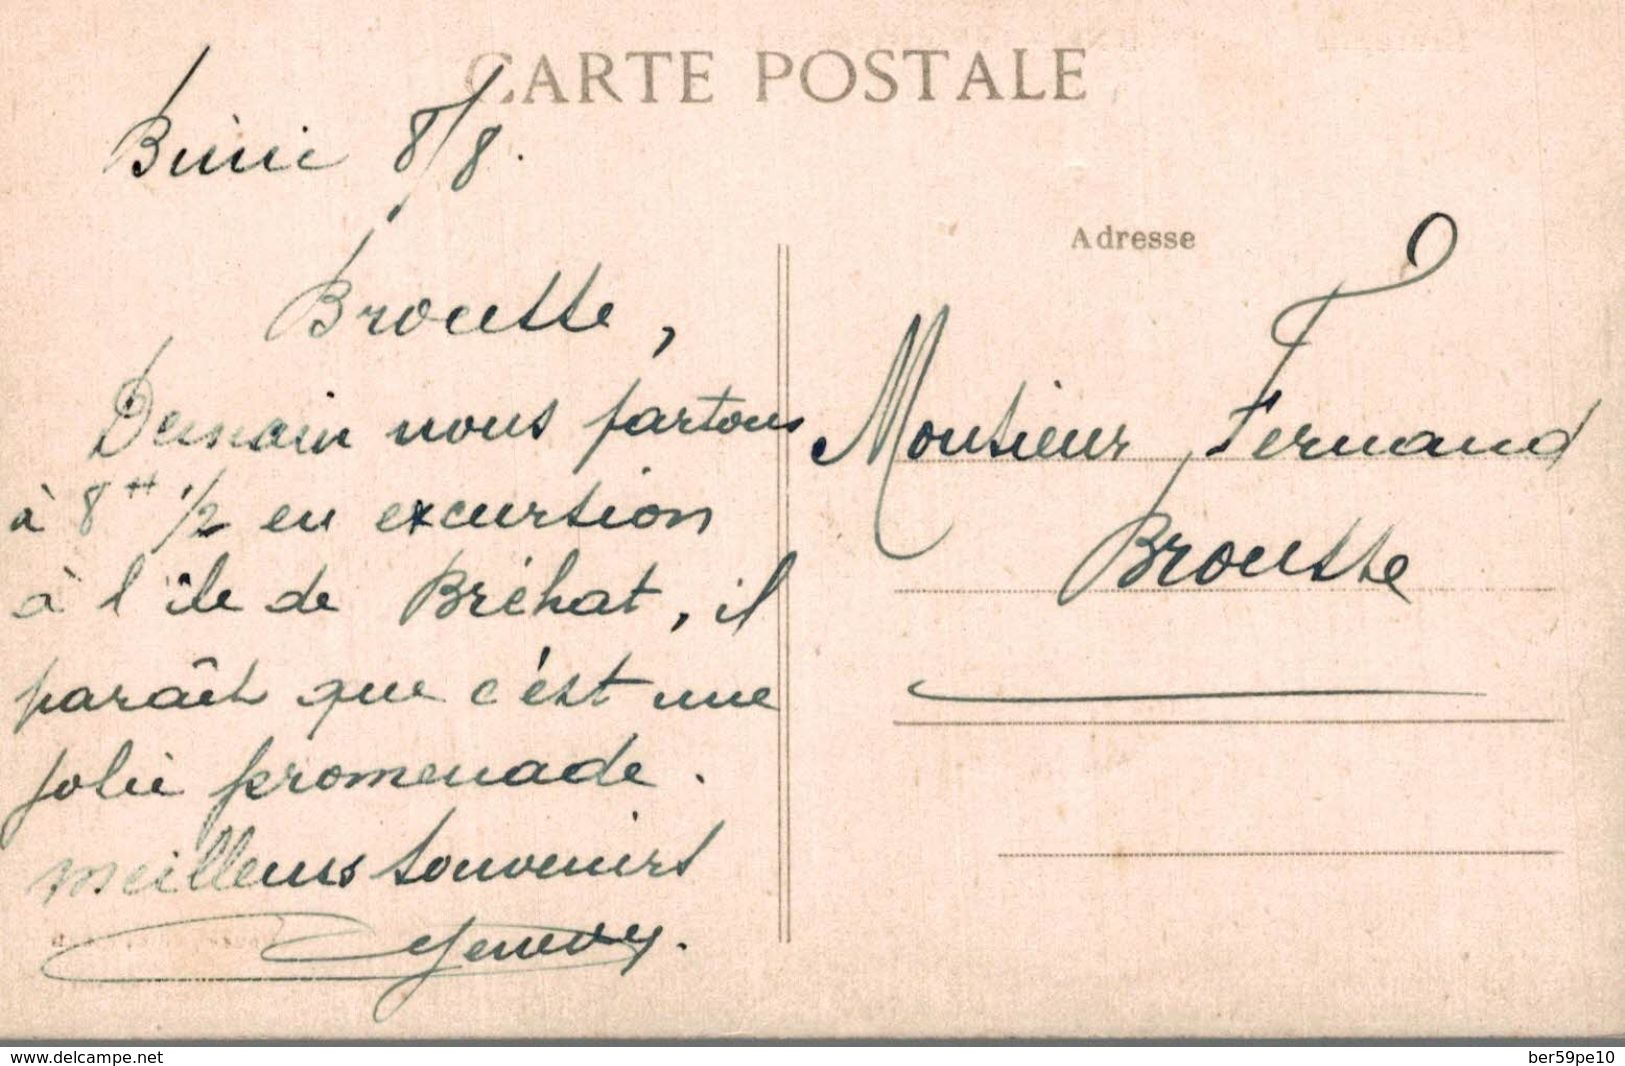 CARTE POSTALE
Binic 8/8.
Adresse
Broutte,
Demain nous partons
à 8H 1/2 en excursion
à l'île de Bréhat, il
paraît que c'est une
jolie promenade.
meilleurs souvenirs
Monsieur Fernand
Broutte
www.delcampe.net
ber59pe10